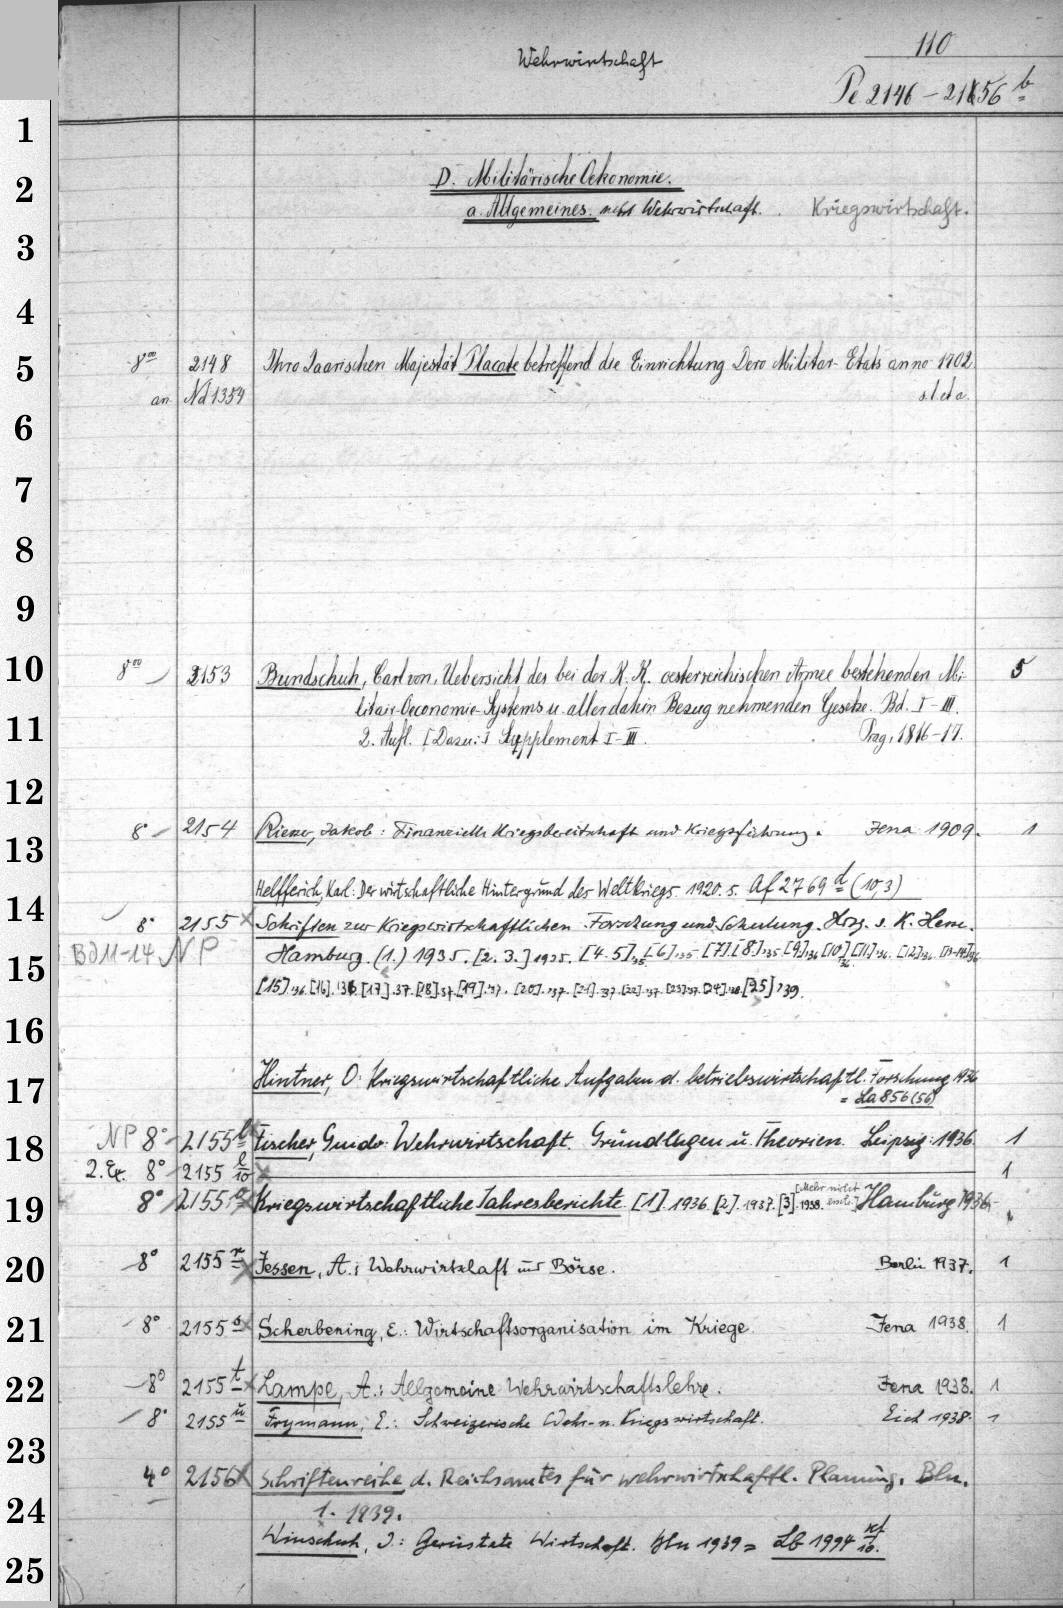 110
Wehrwirtschaft
Pe 2146 – 2156 b
1
D. Militärische Oekonomie.
2
a. Allgemeines nebst Wehrwirtschaft. Kriegswirtschaft.
3
4
5 8vo 2148 Ihro Zaarischen Majestät Placate betreffend die Einrichtung Dero Militar-Etats anno 1702
an Nd 1354 s. l. et a.
6
7
8
9
10 8vo 2153 Bundschuh, Carl von, Uebersicht des bei der K. K. oesterreichischen Armee bestehenden Mi- 5
litair-Oeconomie-Systems u. aller dahin Bezug nehmenden Gesetze. Bd. I–III.
11 2. Aufl. [Dazu:] Supplement I–III. Prag, 1816–17.
12
13 8° 2154 Riesser, Jakob: Finanzielle Kriegsbereitschaft und Kriegsführung. Jena 1909. 1
Helfferich, Karl: Der wirtschaftliche Hintergrund des Weltkriegs. 1920. s. Af 2769 d (10,3)
14 8° 2155 Schriften zur Kriegswirtschaftlichen Forschung und Schulung. Hrg. v. K. Hesse.
Bd 11–14 NP Hamburg. (1.) 1935. [2. 3.] 1935. [4. 5] 35 [6] 35 [7] [8] 35 [9] 36 [10] 36 [11] 36. [12] 36. [13–14] 36
15 [15] 36 [16] 36 [17] 37 [18] 37 [19] 37. [20] 37. [21] 37 [22] 37 [23] 37 [24] 38 [25] 39.
16
17 Hintner, O: Kriegswirtschaftliche Aufgaben d. betriebswirtschaftl. Forschung 1936
= La 856 (56)
18 NP 8° 2155 l Fischer, Guido: Wehrwirtschaft. Grundlagen u. Theorien. Leipzig: 1936. 1
2. Ex. 8° 2155 l/10 1
19 8° 2155 Kriegswirtschaftliche Jahresberichte [1]. 1936 [2]. 1937. [3] 1938. [Mehr nicht ersch.] Hamburg 1936–
20 8° 2155 r Jessen, A.: Wehrwirtschaft und Börse. Berlin 1937. 1
21 8° 2155 s Scherbening, E.: Wirtschaftsorganisation im Kriege. Jena 1938. 1
22 8° 2155 t Lampe, A.: Allgemeine Wehrwirtschaftslehre. Jena 1938. 1
8° 2155 u Frymann, E.: Schweizerische Wehr- u. Kriegswirtschaft. Eich 1938. 1
23
4° 2156 Schriftenreihe d. Reichsamtes für wehrwirtschaftl. Planung. Bln.
24 1. 1939.
Winschuh, J: Gerüstete Wirtschaft. Bln 1939 = Lb 1994 /10.
25